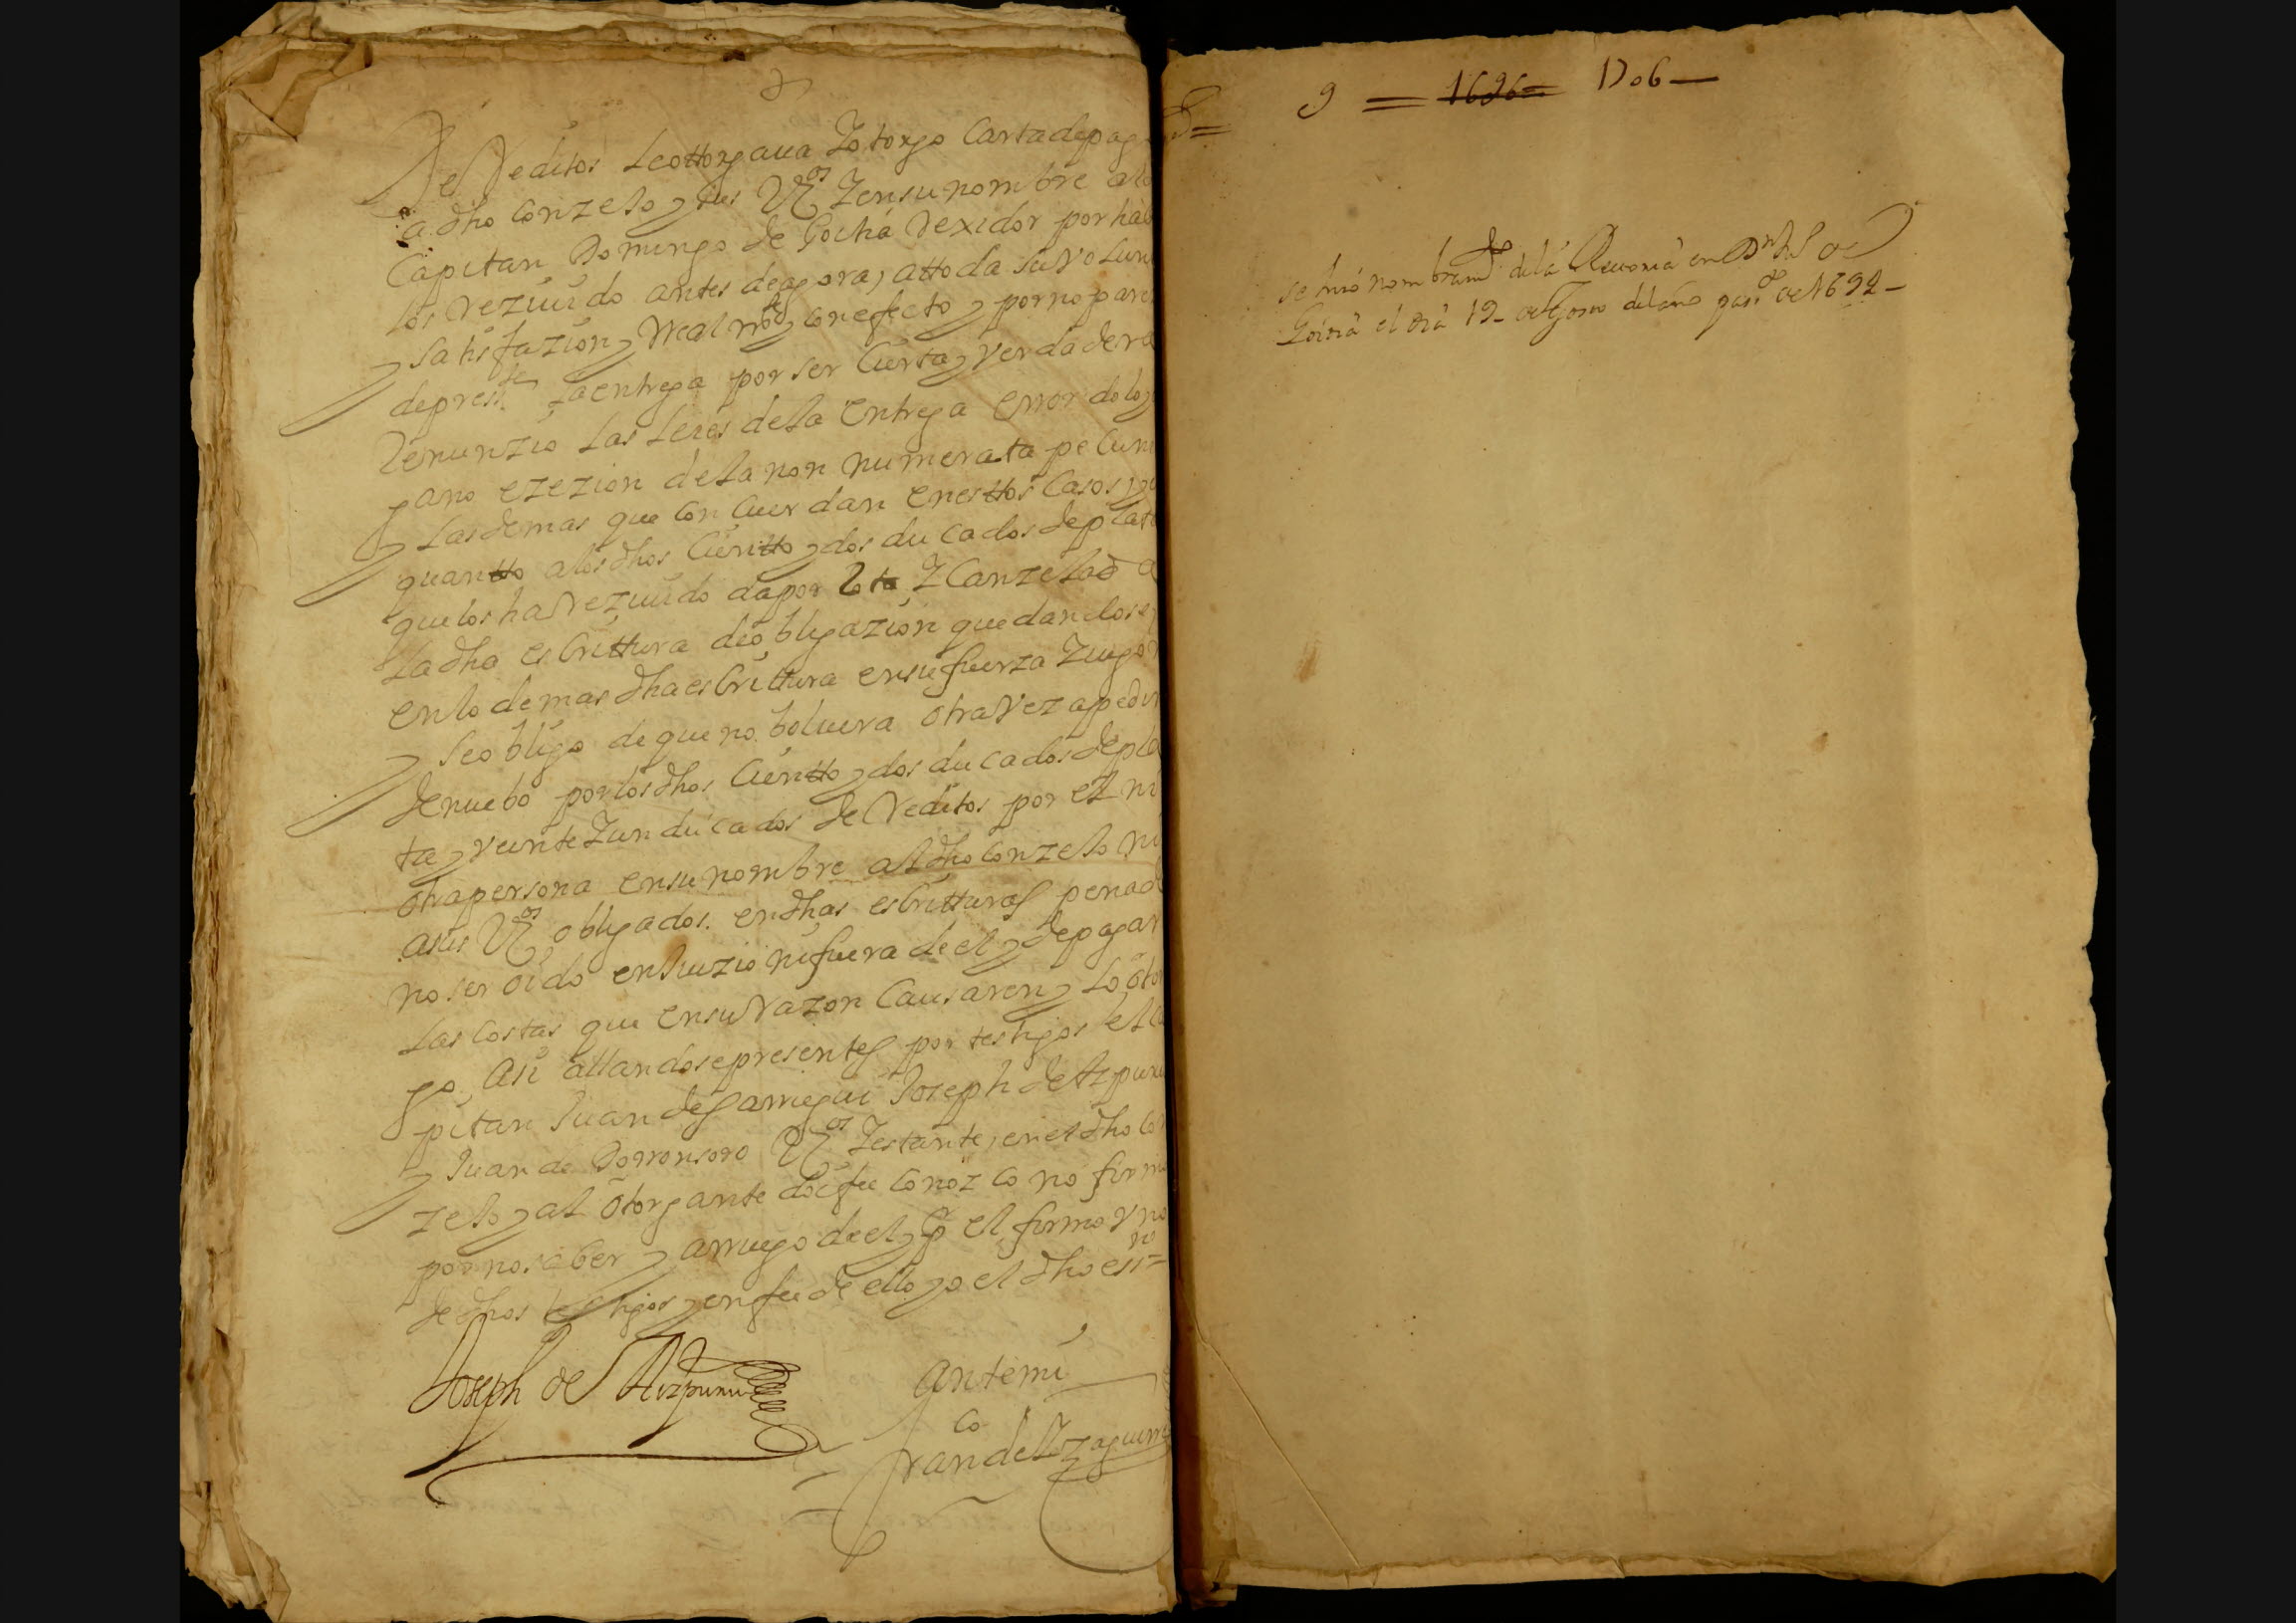 De Reditos Leottorgaua Zotorgo Cartadepag
a dho Conzeto y sus Vzos Zensu nombre alo
Capitan Domingo de Goitia Rexidor por hab
los reziuido antes deagora, attoda su volun
y satisfazion y Realmte y con efecto y por no pare
de presste la entrega por ser Cierta y verdadera
Renunzio Las Leies dela Entrega error dolo y
gano ezezion dela non numerata pecuni
y Las demas que Concuerdan enesttos Casos y
quantto alos dhos Cientto y dos ducados deplat
que los ha rezeuido da por Rota Z Canzelada
La dha escrittura de obligazion quedandose
en lo demas dha escrittura ensu fuerza Zuigor
y se obligo de que no boluera otra vez a pedir
de nuebo por los dhos Cientto y dos ducados depla
ta y veinte Zun ducados de Reditos por el ni
otra persona ensu nombre al dho Conzeto ni
asus Vzos obligados en dhas escritturas pena de
no ser oido en Juizio ni fuera de el y de pagar
Las Costas que ensu Razon Causaren y Lo otor
go, Asi allandose presentes por testigos el Ca
pitan Juan de Garriegui Joseph de Azpuru
y Juan de Dorronsoro Vzos Zestantes en el dho Con
zeto y al otorgante doi fee Conozco no firmo
por no saber y arruego de el y por el firmo vno
de dhos testigos y en fee de ello yo el dho essno=
Joseph de Aizpuru
Ante mi
Franco de Yzaguirre
9 = 1696= 1706—
se hizo nombramto de la en Dn
Goitia el dia 19 de del año pasdo de 1692—